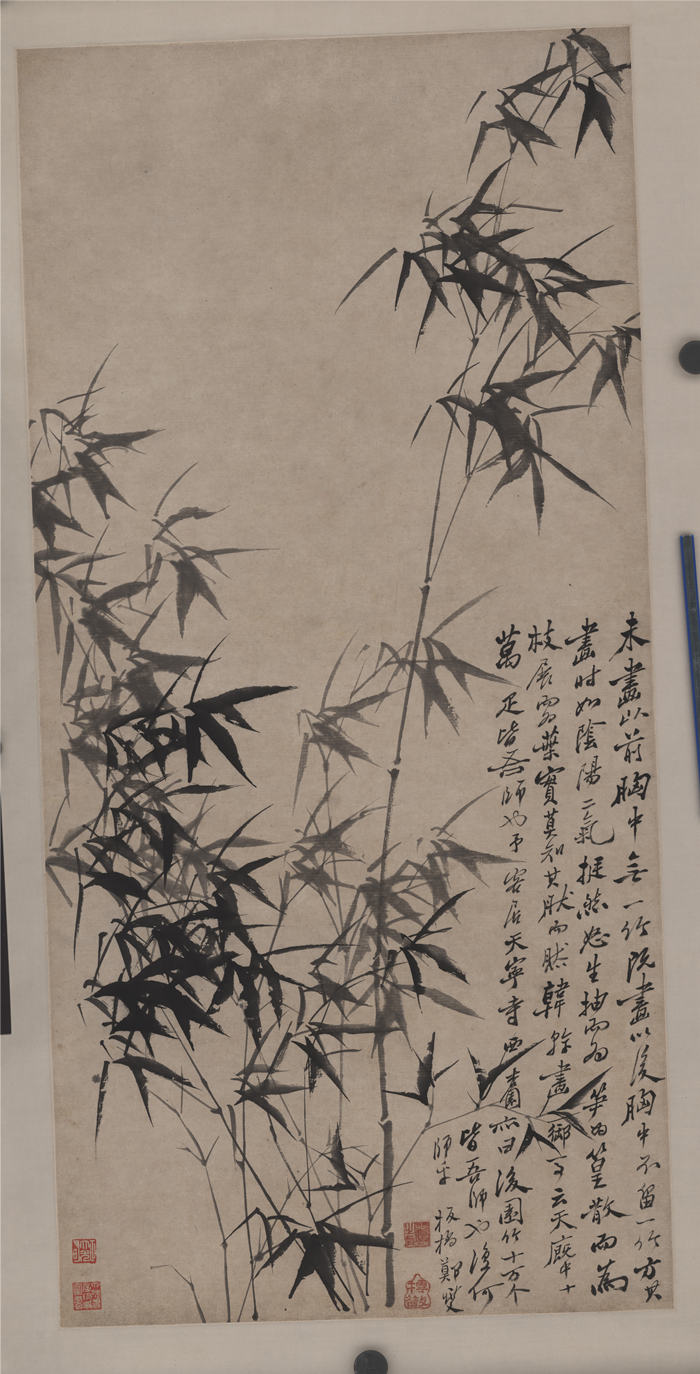 未畫以前胸中無一竹既畫以後胸中不留一竹方其
畫時如陰陽二氣挺然怒生抽而為笋為篁散而為
枝展而為葉實莫知其然而然韓幹畫御馬云天廄中十
萬疋皆吾師也予客居天寧寺西齋亦曰後園竹十万个
皆吾師也復何
師乎 板橋鄭燮